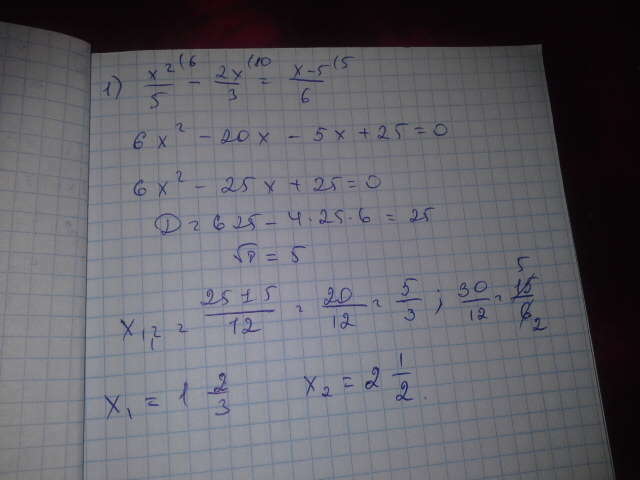 1) x²/5 (6 - 2x/3 (10 = x-5/6 (5
6x² - 20x - 5x + 25 = 0
6x² - 25x + 25 = 0
D = 625 - 4·25·6 = 25
√D = 5
x₁,₂ = 25±5/12 = 20/12 = 5/3 ; 30/12 = 15/6 5 2
x₁ = 1 2/3 x₂ = 2 1/2.